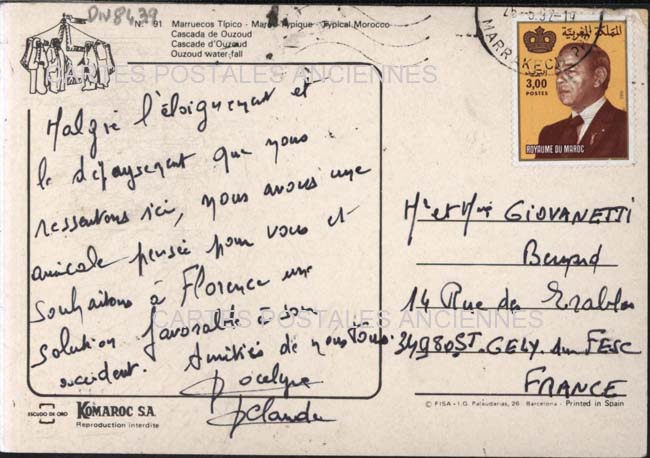 DN8439
N.° 91 Marruecos Típico - Maroc Typique - Typical Morocco
Cascada de Ouzoud
Cascade d'Ouzoud
Ouzoud water-fall
MARRAKECH
المملكة المغربية
3,00
POSTES
ROYAUME DU MAROC
CARTES POSTALES ANCIENNES
Malgré l'éloignement et
le dépaysement que nous
ressentons ici, nous avons une
amicale pensée pour vous et
souhaitons à Florence une
solution favorable à son
accident.
Amitiés de nous tous.
Jocelyne
Claude
Mr et Mme GIOVANETTI
Bernard
14 Rue des Erables
34980 ST. GELY du FESC
FRANCE
CARTES POSTALES ANCIENNES
ESCUDO DE ORO
KOMAROC S.A.
Reproduction interdite
© FISA - I.G. Palaudarias, 26 - Barcelona - Printed in Spain